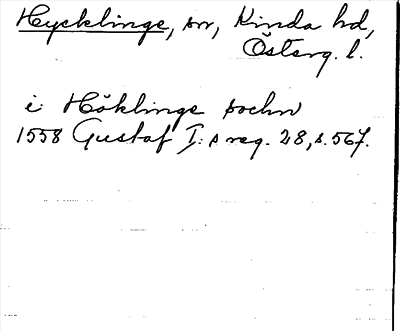 Hycklinge, sn, Kinda hd,
Österg. l.
i Höklinge sochn
1558 Gustaf I:s reg. 28, s. 567.